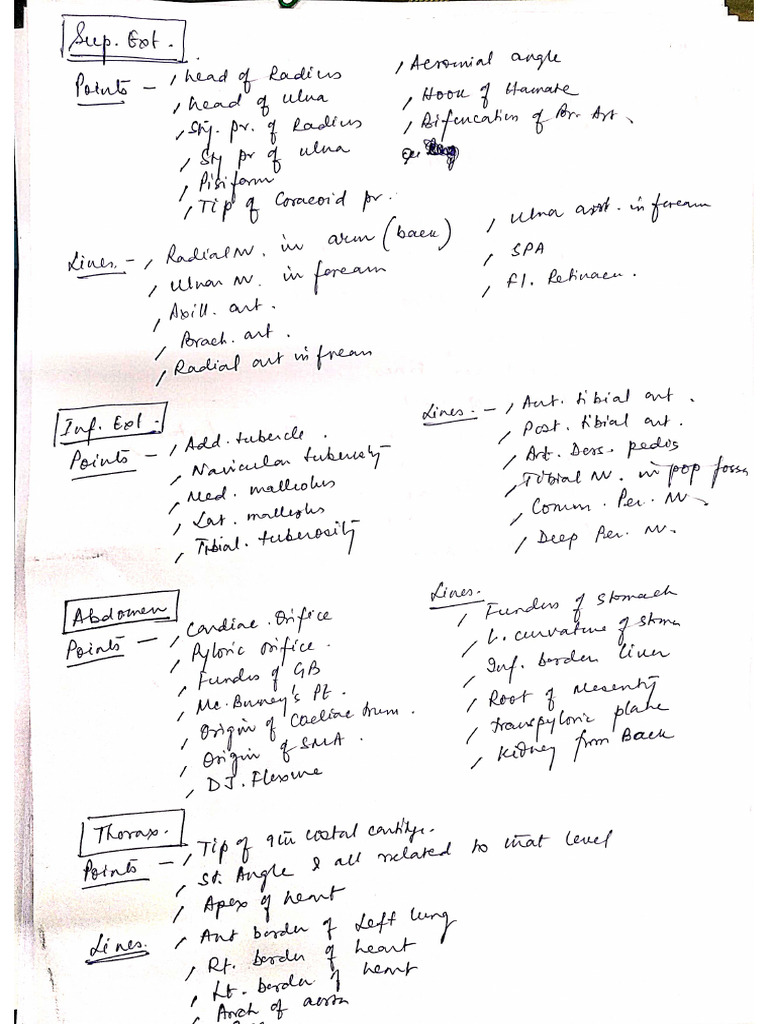 Sup. Ext.
Points - , head of Radius
, head of ulna
, Sty. pr. of Radius
, Sty pr of ulna
, Pisiform
, Tip of Coracoid pr.
, Acromial angle
, Hook of Hamate
, Bifurcation of Br. Art.
Lines. - , Radial N. in arm (back)
, Ulnar N. in forearm
, Axill. art.
, Brach. art.
, Radial art in
, Ulna in
, SPA
, fl. Retinacu.
Inf. Ext.
Points - , Add. tubercle.
, Navicular tuberosity
, Med. malleolus
, Lat. malleolus
, Tibial. tuberosity
Lines. - , Ant. tibial art.
, Post. tibial art.
, Art. Dors. pedis
, Tibial N. in pop fossa
, Comm. Per. N.
, Deep Per. N.
Abdomen
Points - , Cardiac. Orifice
, Pyloric orifice.
, Fundus of GB
, Mc. Burney's Pt.
, Origin of Coeliac trun.
, Origin of SMA.
, DJ. Flexure
Lines.
, Fundus of Stomach
, L. curvature of stoma
, Inf. border liver
, Root of Mesentry
, transpyloric plane
, Kidney from Back
Thorax.
Points - , Tip of 9th costal
, St. Angle & all related to that level
, Apex of heart
Lines. , Ant border of Left lung
, Rt. border of heart
, Lt. border of heart
, Arch of aorta